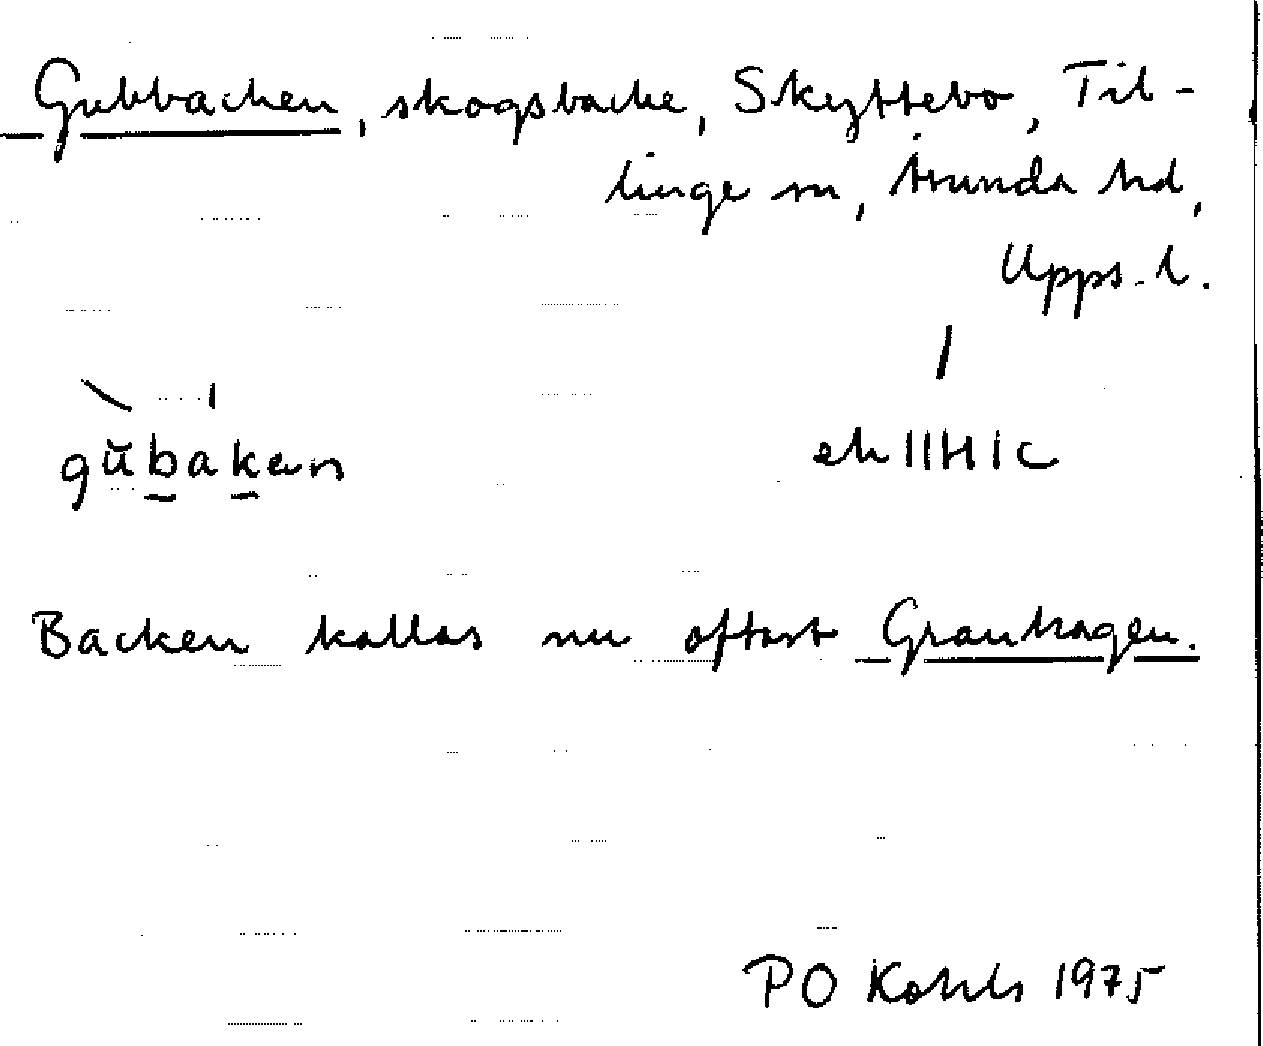 Gubbacken, skogsbacke, Skyttebo, Til-
linge sn, Åsunda hd,
Upps. l.
gŭbaken ek 11H1c
Backen kallas nu oftast Granhagen.
PO Kohls 1975